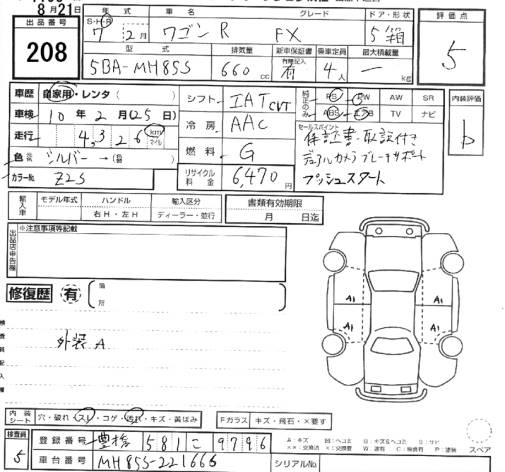 8月21日
出品番号
208
年式 車名 グレード ドア・形状
S・H・R
7年 2月 ワゴンR FX 5 箱
型式 排気量 新車保証書 乗車定員 最大積載量
有 4人 — kg
5BA-MH85S 660cc
評価点
5
車歴 自家用・レンタ
車検 10年2月(25日)
走行 4,326 km マイル
色 シルバー
カラーNo. Z2S
シフト IAT CVT
冷房 AAC
燃料 G
リサイクル料金 6,470円
純正のみ PS PW AW SR
ABS エアB TV ナビ
内装評価
b
セールスポイント
保証書・取説付き
デュアルカメラブレーキサポート
プッシュスタート
輸入車 モデル年式 ハンドル 輸入区分
右H・左H ディーラー・並行
書類有効期限
月 日迄
出品店申告欄
※注意事項等記載
修復歴 有 箇所
外装A
A1 A1
A1 A1
内装シート 穴・破れ・スレ・コゲ・汚れ・キズ・黄ばみ
Fガラス キズ・飛石・×要す
検査員
5
登録番号 豊橋 581 こ 9796
車台番号 MH85S-221665
シリアルNo.
スペア